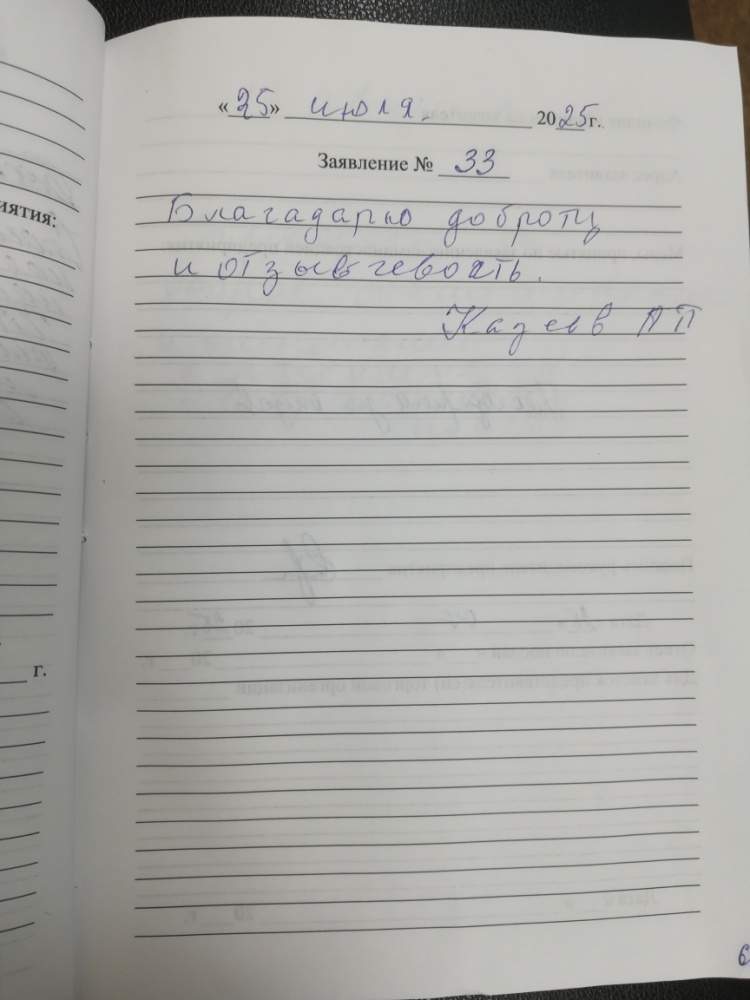 «25» июля. 2025г.
Заявление № 33
Благадарю доброту
и отзывчевость.
Казеев А П
иятия:
г.
6